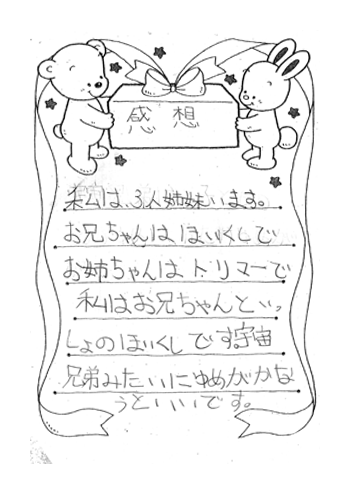 感想
私は、3人姉妹います。
お兄ちゃんは、ほいくしで
お姉ちゃんはトリマーで
私はお兄ちゃんといっ
しょのほいくしです。宇宙
兄弟みたいにゆめがかな
うといいです。